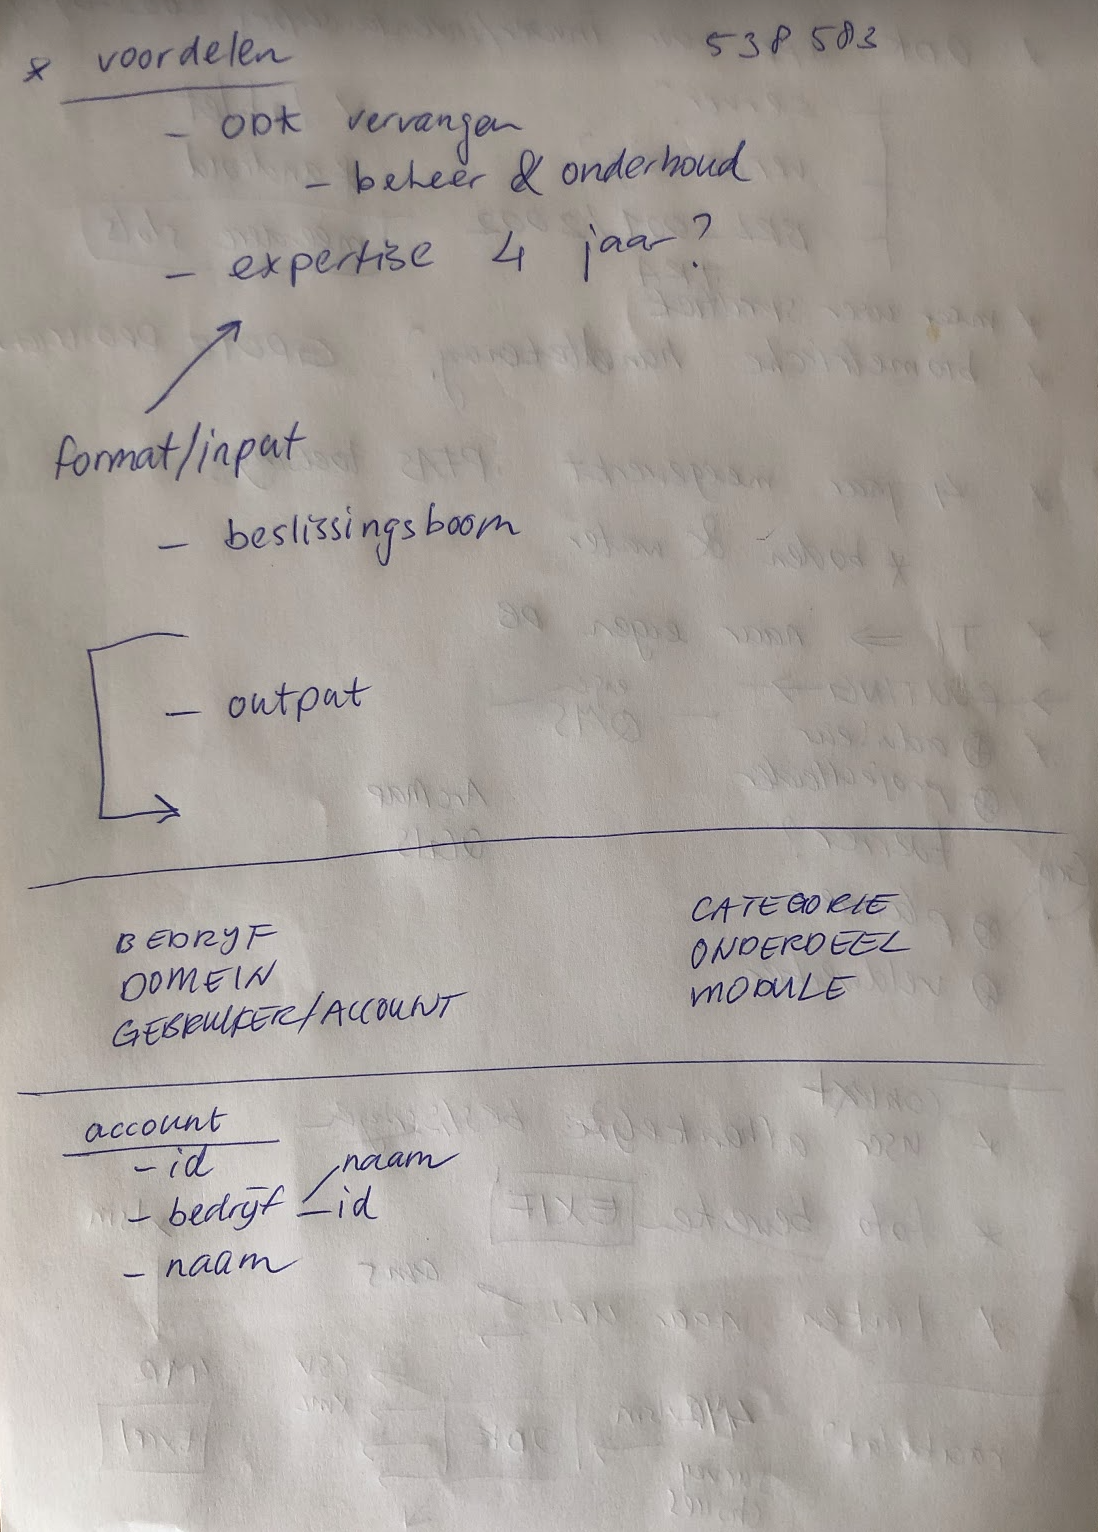 * voordelen
538583
- ODK vervangen
- beheer & onderhoud
- expertise 4 jaar?
format/input
- beslissingsboom
- output
BEDRYF
DOMEIN
GEBRUIKER/ACCOUNT
CATEGORIE
ONDERDEEL
MODULE
account
- id
- bedrijf - naam
- id
- naam